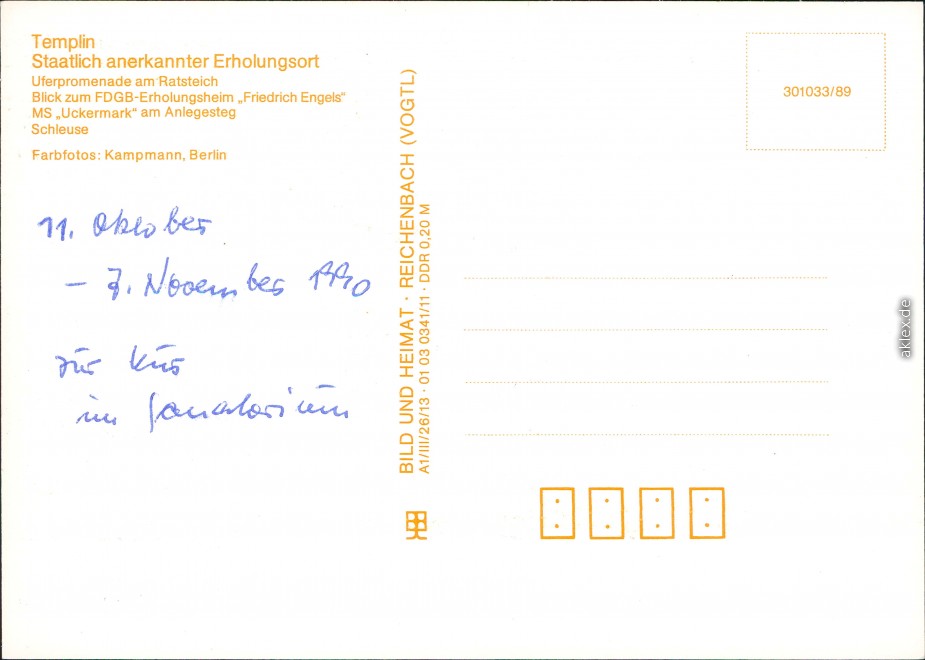 Templin
Staatlich anerkannter Erholungsort
Uferpromenade am Ratsteich
Blick zum FDGB-Erholungsheim „Friedrich Engels“
MS „Uckermark“ am Anlegesteg
Schleuse
Farbfotos: Kampmann, Berlin
11. Oktober
– 7. November 1990
zur Kur
im Sanatorium
BILD UND HEIMAT · REICHENBACH (VOGTL)
A1/III/26/13 · 01 03 0341/11 · DDR 0,20 M
301033/89
aklex.de